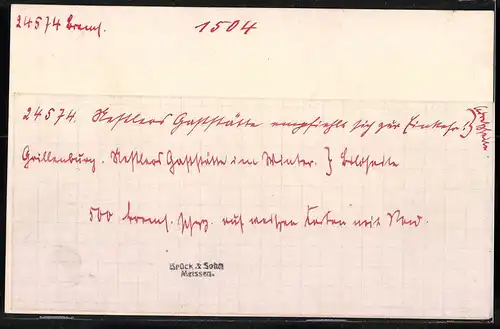 24574 Broms. 1504
24574. Nestlers Gaststätte empfiehlt sich zur Einkehr!}
Grillenburg. Nestlers Gaststätte im Winter. } Bildseite
500 Broms. schwz. auf weissen Karten mit Rand.
Brück & Sohn
Meissen.